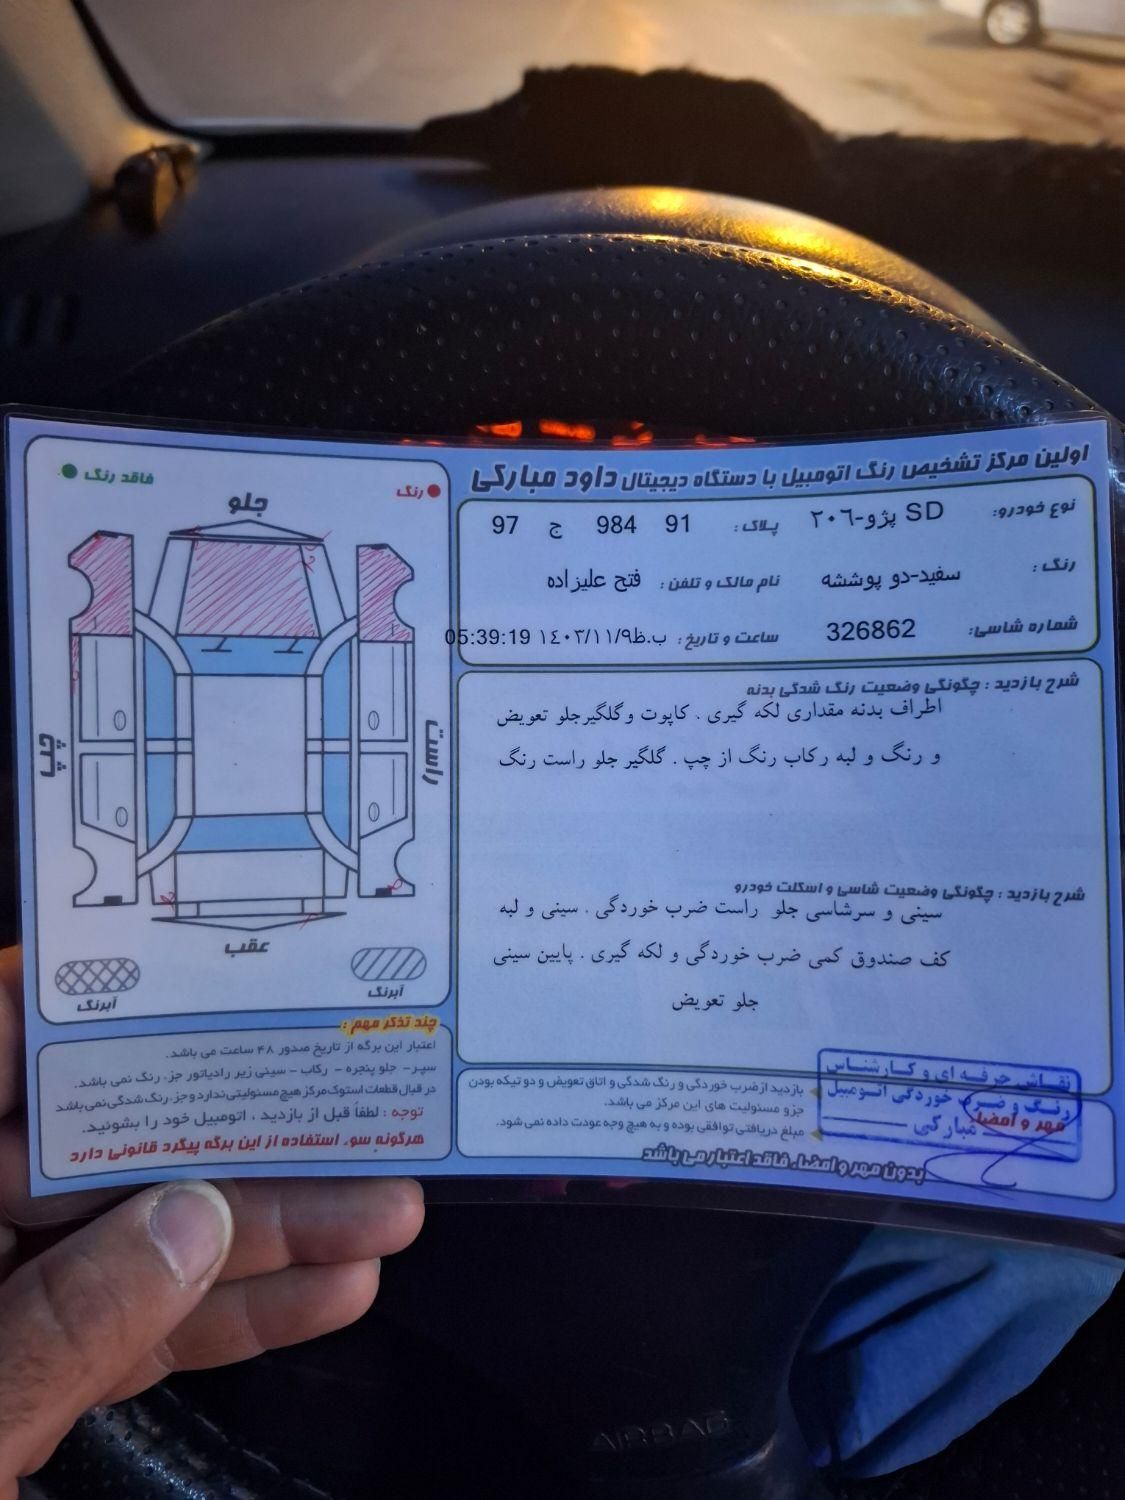 اولین مرکز تشخیص رنگ اتومبیل با دستگاه دیجیتال داود مبارکی
نوع خودرو: SD پژو-۲۰۶ پلاک: 91 984 ج 97
رنگ: سفید-دو پوششه نام مالک و تلفن: فتح علیزاده
شماره شاسی: 326862 ساعت و تاریخ: ب.ظ ۱٤۰۳/۱۱/۹ 05:39:19
شرح بازدید : چگونگی وضعیت رنگ شدگی بدنه
اطراف بدنه مقداری لکه گیری . کاپوت و گلگیرجلو تعویض
و رنگ و لبه رکاب رنگ از چپ . گلگیر جلو راست رنگ
شرح بازدید : چگونگی وضعیت شاسی و اسکلت خودرو
سینی و سرشاسی جلو راست ضرب خوردگی . سینی و لبه
کف صندوق کمی ضرب خوردگی و لکه گیری . پایین سینی
جلو تعویض
بازدید از ضرب خوردگی و رنگ شدگی و اتاق تعویض و دو تیکه بودن
جزو مسئولیت های این مرکز می باشد.
مبلغ دریافتی توافقی بوده و به هیچ وجه عودت داده نمی شود.
بدون مهر و امضاء فاقد اعتبار می باشد
مهر و امضاء
نقاش حرفه ای و کارشناس
رنگ و ضرب خوردگی اتومبیل
مبارکی
رنگ
فاقد رنگ
جلو
راست
چپ
عقب
آبرنگ
آبرنگ
چند تذکر مهم :
اعتبار این برگه از تاریخ صدور ۴۸ ساعت می باشد.
سپر - جلو پنجره - رکاب - سینی زیر رادیاتور جزء رنگ نمی باشد.
در قبال قطعات استوک مرکز هیچ مسئولیتی ندارد و جزء رنگ شدگی نمی باشد
توجه : لطفاً قبل از بازدید ، اتومبیل خود را بشوئید.
هرگونه سوء استفاده از این برگه پیگرد قانونی دارد
AIRBAG